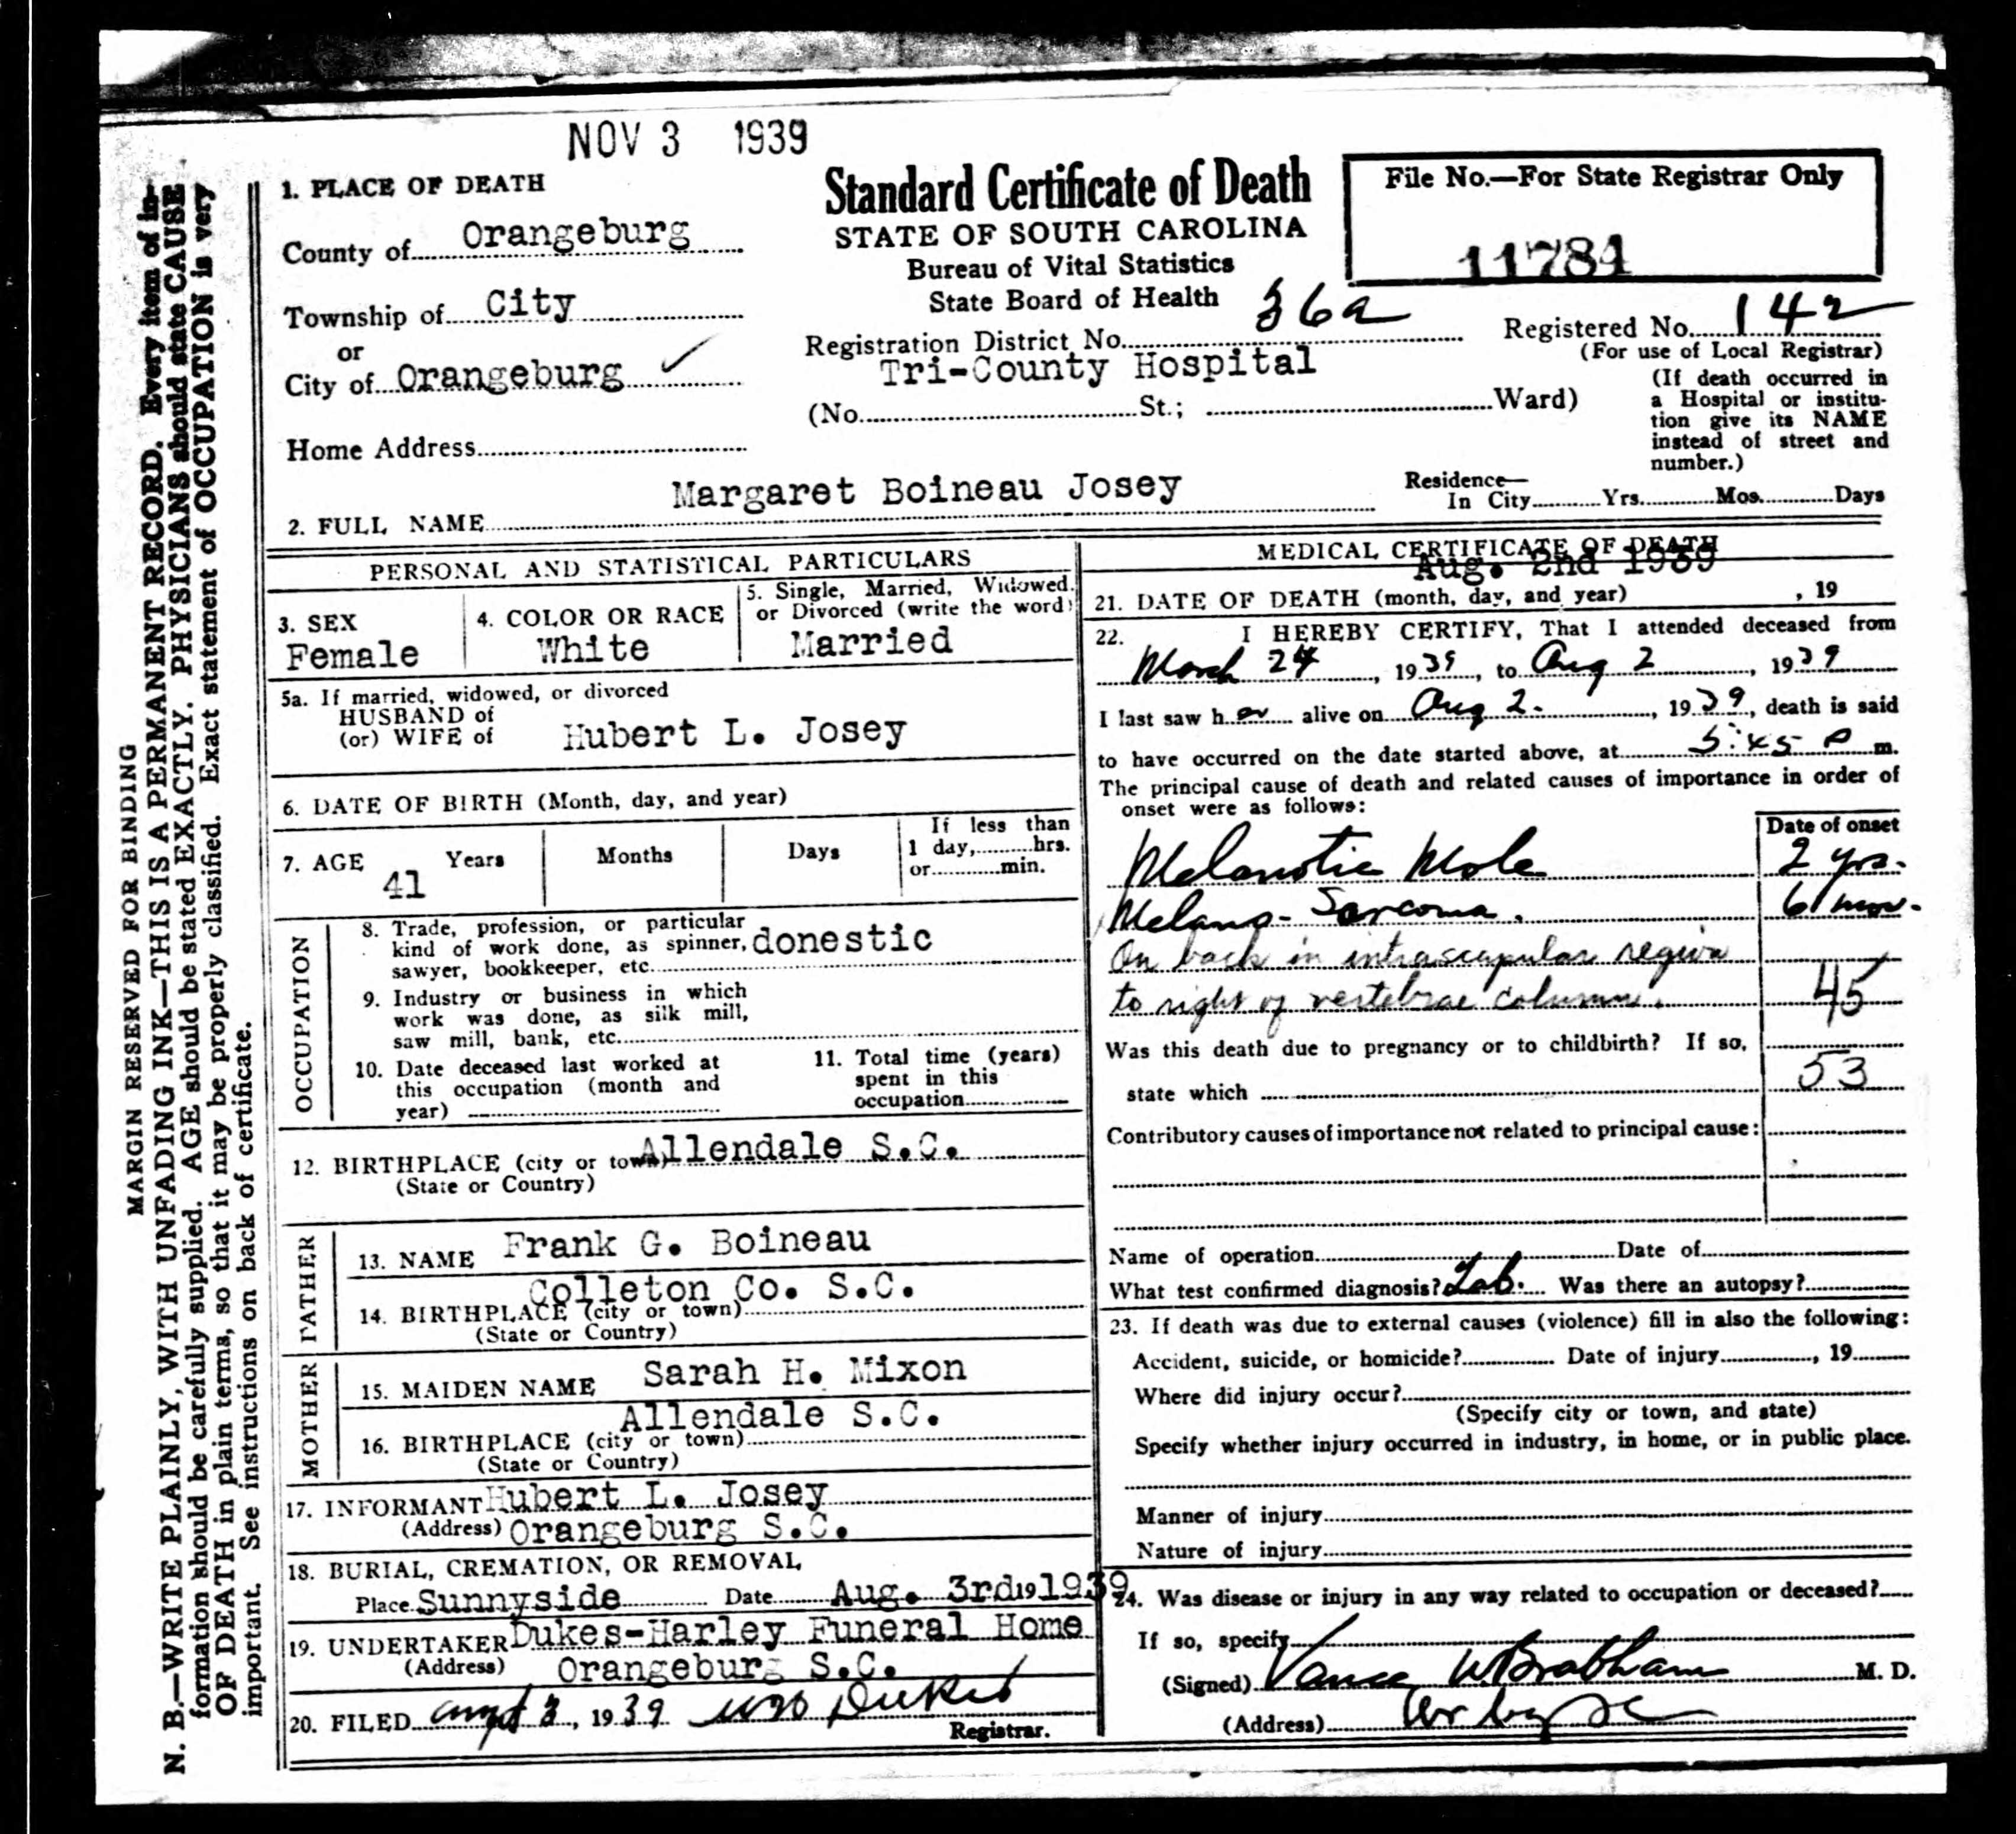 NOV 3 1939
Standard Certificate of Death
STATE OF SOUTH CAROLINA
Bureau of Vital Statistics
State Board of Health
File No.—For State Registrar Only
11784
1. PLACE OF DEATH
County of Orangeburg
Township of City
or
City of Orangeburg ✓
Home Address
Registration District No. 36a
Registered No. 142
(For use of Local Registrar)
Tri-County Hospital
(No. St.; Ward)
(If death occurred in
a Hospital or institu-
tion give its NAME
instead of street and
number.)
2. FULL NAME Margaret Boineau Josey
Residence—
In City Yrs. Mos. Days
PERSONAL AND STATISTICAL PARTICULARS
3. SEX
Female
4. COLOR OR RACE
White
5. Single, Married, Widowed,
or Divorced (write the word)
Married
5a. If married, widowed, or divorced
HUSBAND of
(or) WIFE of Hubert L. Josey
6. DATE OF BIRTH (Month, day, and year)
7. AGE 41 Years Months Days
If less than
1 day, hrs.
or min.
OCCUPATION
8. Trade, profession, or particular
kind of work done, as spinner, donestic
sawyer, bookkeeper, etc.
9. Industry or business in which
work was done, as silk mill,
saw mill, bank, etc.
10. Date deceased last worked at
this occupation (month and
year)
11. Total time (years)
spent in this
occupation
12. BIRTHPLACE (city or town) Allendale S.C.
(State or Country)
FATHER
13. NAME Frank G. Boineau
Colleton Co. S.C.
14. BIRTHPLACE (city or town)
(State or Country)
MOTHER
15. MAIDEN NAME Sarah H. Mixon
Allendale S.C.
16. BIRTHPLACE (city or town)
(State or Country)
17. INFORMANT Hubert L. Josey
(Address) Orangeburg S.C.
18. BURIAL, CREMATION, OR REMOVAL
Place Sunnyside Date Aug. 3rd 19 1939
19. UNDERTAKER Dukes-Harley Funeral Home
(Address) Orangeburg S.C.
20. FILED 3, 1939 Dukes
Registrar.
MEDICAL CERTIFICATE OF DEATH
Aug. 2nd 1939
21. DATE OF DEATH (month, day, and year) , 19
22. I HEREBY CERTIFY, That I attended deceased from
March 24, 1939, to Aug 2, 1939
I last saw h er alive on Aug 2., 1939, death is said
to have occurred on the date started above, at 5:45 P m.
The principal cause of death and related causes of importance in order of
onset were as follows:
Date of onset
Melanotic Mole 2 yrs.
Melano-Sarcoma. 6 mos.
On back in intrascapular region
to right of vertebrae column. 45
Was this death due to pregnancy or to childbirth? If so,
state which 53
Contributory causes of importance not related to principal cause:
Name of operation Date of
What test confirmed diagnosis? Lab. Was there an autopsy?
23. If death was due to external causes (violence) fill in also the following:
Accident, suicide, or homicide? Date of injury , 19
Where did injury occur?
(Specify city or town, and state)
Specify whether injury occurred in industry, in home, or in public place.
Manner of injury
Nature of injury
24. Was disease or injury in any way related to occupation or deceased?
If so, specify
(Signed) Vance W Brabham M. D.
(Address)
MARGIN RESERVED FOR BINDING
N. B.—WRITE PLAINLY, WITH UNFADING INK—THIS IS A PERMANENT RECORD. Every item of in-
formation should be carefully supplied. AGE should be stated EXACTLY. PHYSICIANS should state CAUSE
OF DEATH in plain terms, so that it may be properly classified. Exact statement of OCCUPATION is very
important. See instructions on back of certificate.